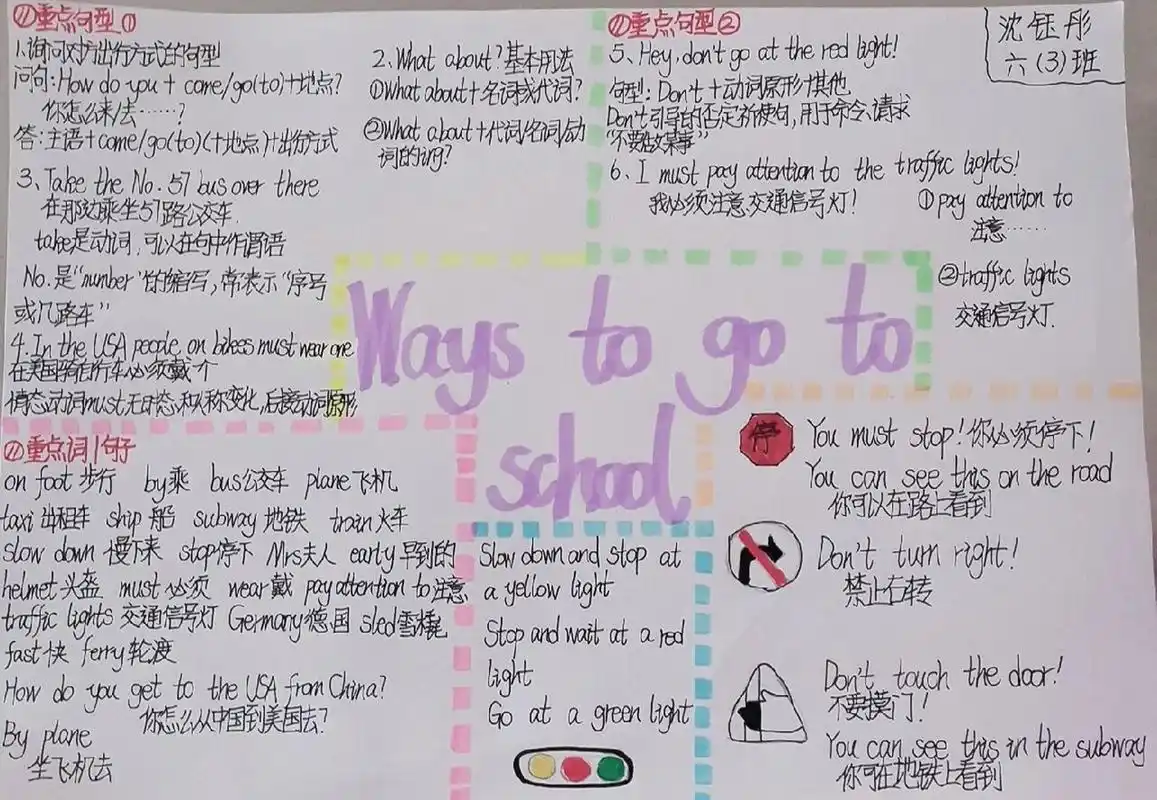 ①重点句型①
1.询问对方出行方式的句型
问句:How do you + come/go(to)+地点?
你怎么来/去……?
答:主语+come/go(to)(+地点)+出行方式
2.What about?基本用法
①What about+名词或代词?
②What about+代词/名词/动
词的ing?
3、Take the No.57 bus over there
在那边乘坐57路公交车.
take是动词,可以在句中作谓语
No.是"number"的缩写,常表示"序号
或几路车"
4.In the USA people on bikes must wear one
在美国骑自行车必须戴一个
情态动词must,无时态和人称变化,后接动词原形
②重点句型②
5、Hey,don't go at the red light!
句型:Don't+动词原形+其他
Don't引导的否定祈使句,用于命令、请求
"不要做某事"
6、I must pay attention to the traffic lights!
我必须注意交通信号灯!
①pay attention to
注意……
②traffic lights
交通信号灯.
沈钰彤
六(3)班
Ways to go to
school
重点词/句子
on foot 步行 by乘 bus公交车 plane飞机
taxi 出租车 ship 船 subway 地铁 train火车
slow down 慢下来 stop停下 Mrs夫人 early 早到的
helmet头盔 must 必须 wear戴 pay attention to注意
traffic lights 交通信号灯 Germany德国 sled雪橇
fast快 ferry轮渡
How do you get to the USA from China?
你怎么从中国到美国去?
By plane
坐飞机去
Slow down and stop at
a yellow light
Stop and wait at a red
light
Go at a green light
停
You must stop!你必须停下!
You can see this on the road
你可以在路上看到
Don't turn right!
禁止右转
Don't touch the door!
不要摸门!
You can see this in the subway
你可在地铁上看到